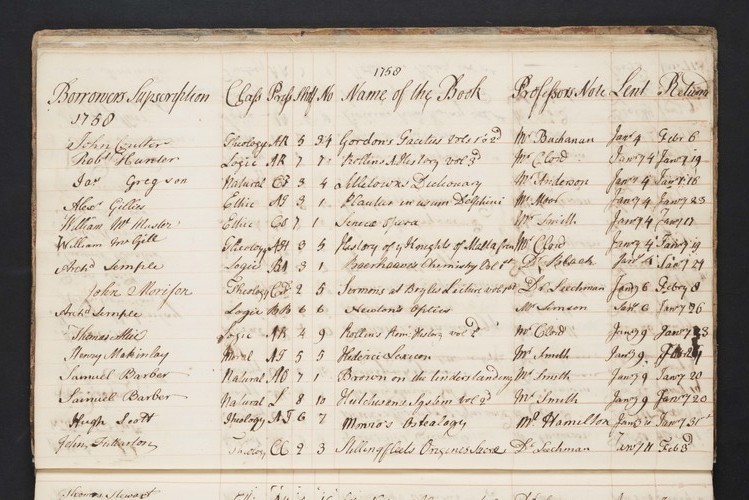 1758
Borrowers Supscription Class Press Shelf No Name of the Book Professors Note Lent Return
1758
John Coulter Theology AR 5 34 Gordon's Tacitus vols 1 & 2d Mr Buchanan Janr 4 Febr 6
Robt Hunter Logic AR 7 7 Rollins A History vol 3d Mr Clow Janry 4 Janry 19
Jas Gregson Natural 3 4 Dictionary Mr Anderson Janry 4 Janry 16
Alexr Gillies Ethic 3 1 Plautus in usum Delphini Mr Moor Janry 4 Janry 23
William Mc Master Ethic 7 1 Seneca Opera Mr Smith Janry 4 Janry 17
William Mc Gill Theology 3 5 History of ye Knights of Malta Mr Clow Janry 4 Janry 19
Archd Semple Logic 3 1 Boerhaaves Chemistry Vol 1st Dr Janry 6 Janry 24
John Morison Theology 2 5 Sermons at Boyles Lecture Dr Leechman Janry 6 Febry 8
Archd Semple Logic BB 6 6 Newton's Optics Mr Simson Janry 6 Janry 26
Thomas Logic AR 4 9 Rollins Rom. History vol 2d Mr Clow Janry 9 Janry 23
Henry Makinlay Moral 5 5 Hederici Lexicon Mr Smith Janry 9
Samuel Barber Natural 7 1 Brown on the Understanding Mr Smith Janry 9 Janry 20
Samuell Barber Natural 8 10 Hutchesons System vol 2d Mr Smith Janry 9 Janry 20
Hugh Scott Theology 6 7 Monro's Ostealogy Mr Hamelton Janry 31st
John Fullarton Theology CC 2 3 Stillingfleets Origenes Sacræ Dr Leechman Janry 11 Feb 3d
Thomas Stewart